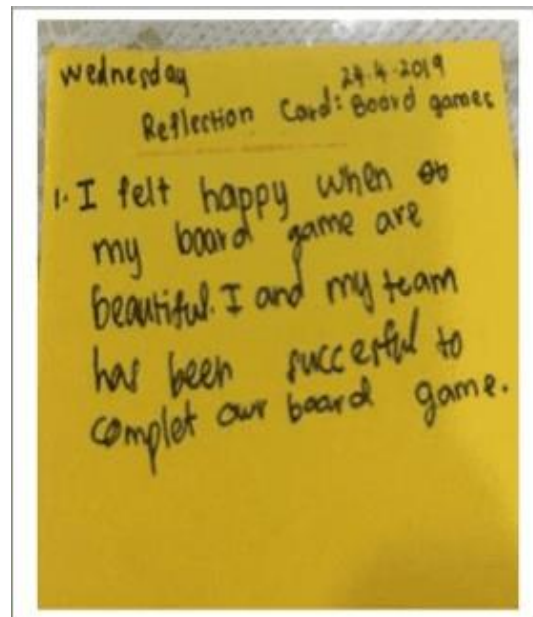 wednesday
24.4.2019
Reflection Card: Board games
1. I felt happy when
my board game are
beautiful. I and my team
has been succesful to
complet our board game.